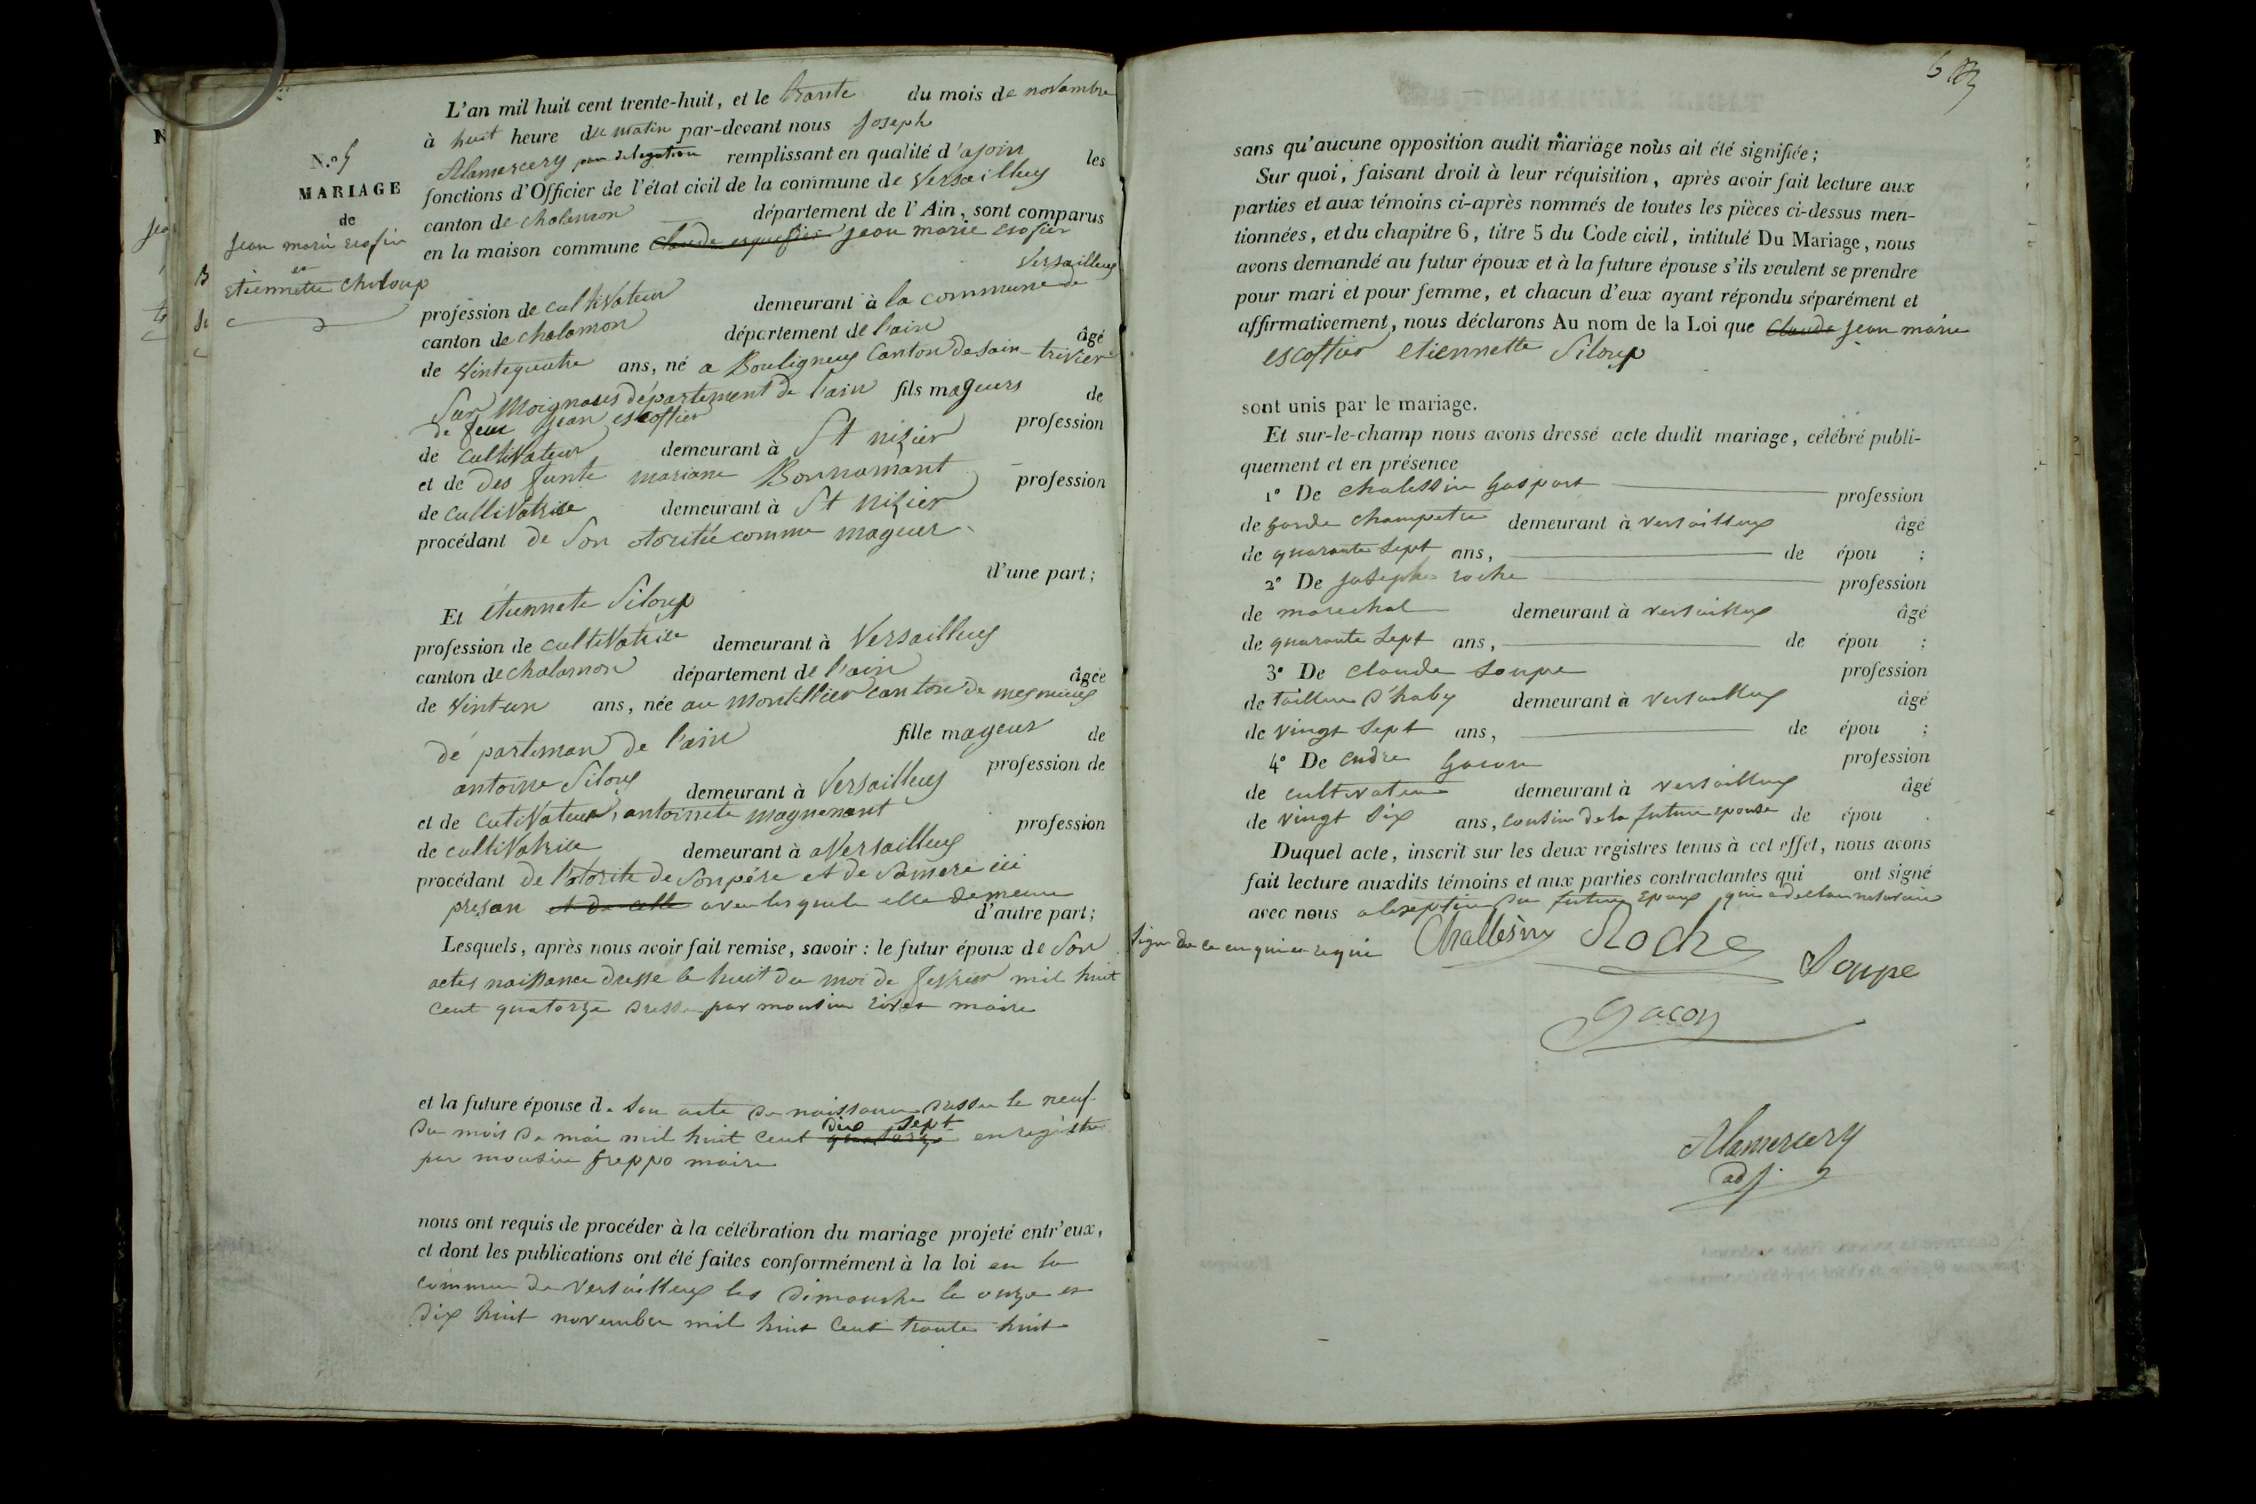 L'an mil huit cent trente-huit, et le trante du mois de novambre
à huit heure du matin par-devant nous Joseph
Alamercery par delegation remplissant en qualité d'ajoin les
fonctions d'Officier de l'état civil de la commune de Versailleux
canton de chalamon département de l'Ain, sont comparus
en la maison commune Claude jean marie escofier
Versailleux
profession de cultivateur demeurant à la commune de
canton de chalamon département de l'ain âgé
de vintequatre ans, né a Bouligneux Canton de sain-trivier
Sur Moignans département de l'ain fils mageurs de
de feue Jean escoffier profession
de cultivateur demeurant à St nizier
et de des funte mariane Bonnamant profession
de cultivatrise demeurant à St nizier
procédant de Son otoritée comme mageur
d'une part;
N.º 5
MARIAGE
de
Jean marie
et
etiennette Chiloup
Et étiennete Siloup
profession de cultivatrise demeurant à Versailleux
canton de chalamon département de l'ain âgée
de vint-un ans, née au Montellier canton de mesmieux
département de l'ain fille mageur de
antoine Siloup demeurant à Versailleux profession de
et de cutivateur, antoinete magnenant profession
de cultivatrice demeurant à a Versailleux
procédant de l'otorite de Son père et de Sa mere ici
presan et de celle avec lesquele elle demeure
d'autre part;
Lesquels, après nous avoir fait remise, savoir: le futur époux de Son
actes naissance dressé le huit du moi de fevrier mil huit
cent quatorze dressé par monsieur maire
et la future épouse de Son acte de naissance dressé le neuf
du mois de mai mil huit cent quatorze dix sept enregistré
par monsieur greppo maire
nous ont requis de procéder à la célébration du mariage projeté entr'eux,
et dont les publications ont été faites conformément à la loi en la
commune de Versailleux les dimanche le onze et
dix huit novembre mil huit cent trante huit
sans qu'aucune opposition audit mariage nous ait été signifiée;
Sur quoi, faisant droit à leur réquisition, après avoir fait lecture aux
parties et aux témoins ci-après nommés de toutes les pièces ci-dessus men-
tionnées, et du chapitre 6, titre 5 du Code civil, intitulé Du Mariage, nous
avons demandé au futur époux et à la future épouse s'ils veulent se prendre
pour mari et pour femme, et chacun d'eux ayant répondu séparément et
affirmativement, nous déclarons Au nom de la Loi que Claude Jean marie
escoffier etiennette Siloup
sont unis par le mariage.
Et sur-le-champ nous avons dressé acte dudit mariage, célébré publi-
quement et en présence
1º De chalessin gaspart profession
de garde champetre demeurant à versailleux âgé
de quarante sept ans, de épou ;
2º De joseph roche profession
de marechal demeurant à versailleux âgé
de quarante sept ans, de épou ;
3º De claude soupe profession
de tailleur d'haby demeurant à versailleux âgé
de vingt sept ans, de épou ;
4º De endre gacon profession
de cultivateur demeurant à versailleux âgé
de vingt six ans, cousin de la future epouse de épou .
Duquel acte, inscrit sur les deux registres tenus à cet effet, nous avons
fait lecture auxdits témoins et aux parties contractantes qui ont signé
avec nous a lexeption du futur epoux qui a declaré
signer de ce enquis et requis
Challesin Roche
Soupe
Gacon
Alamercery
adj.